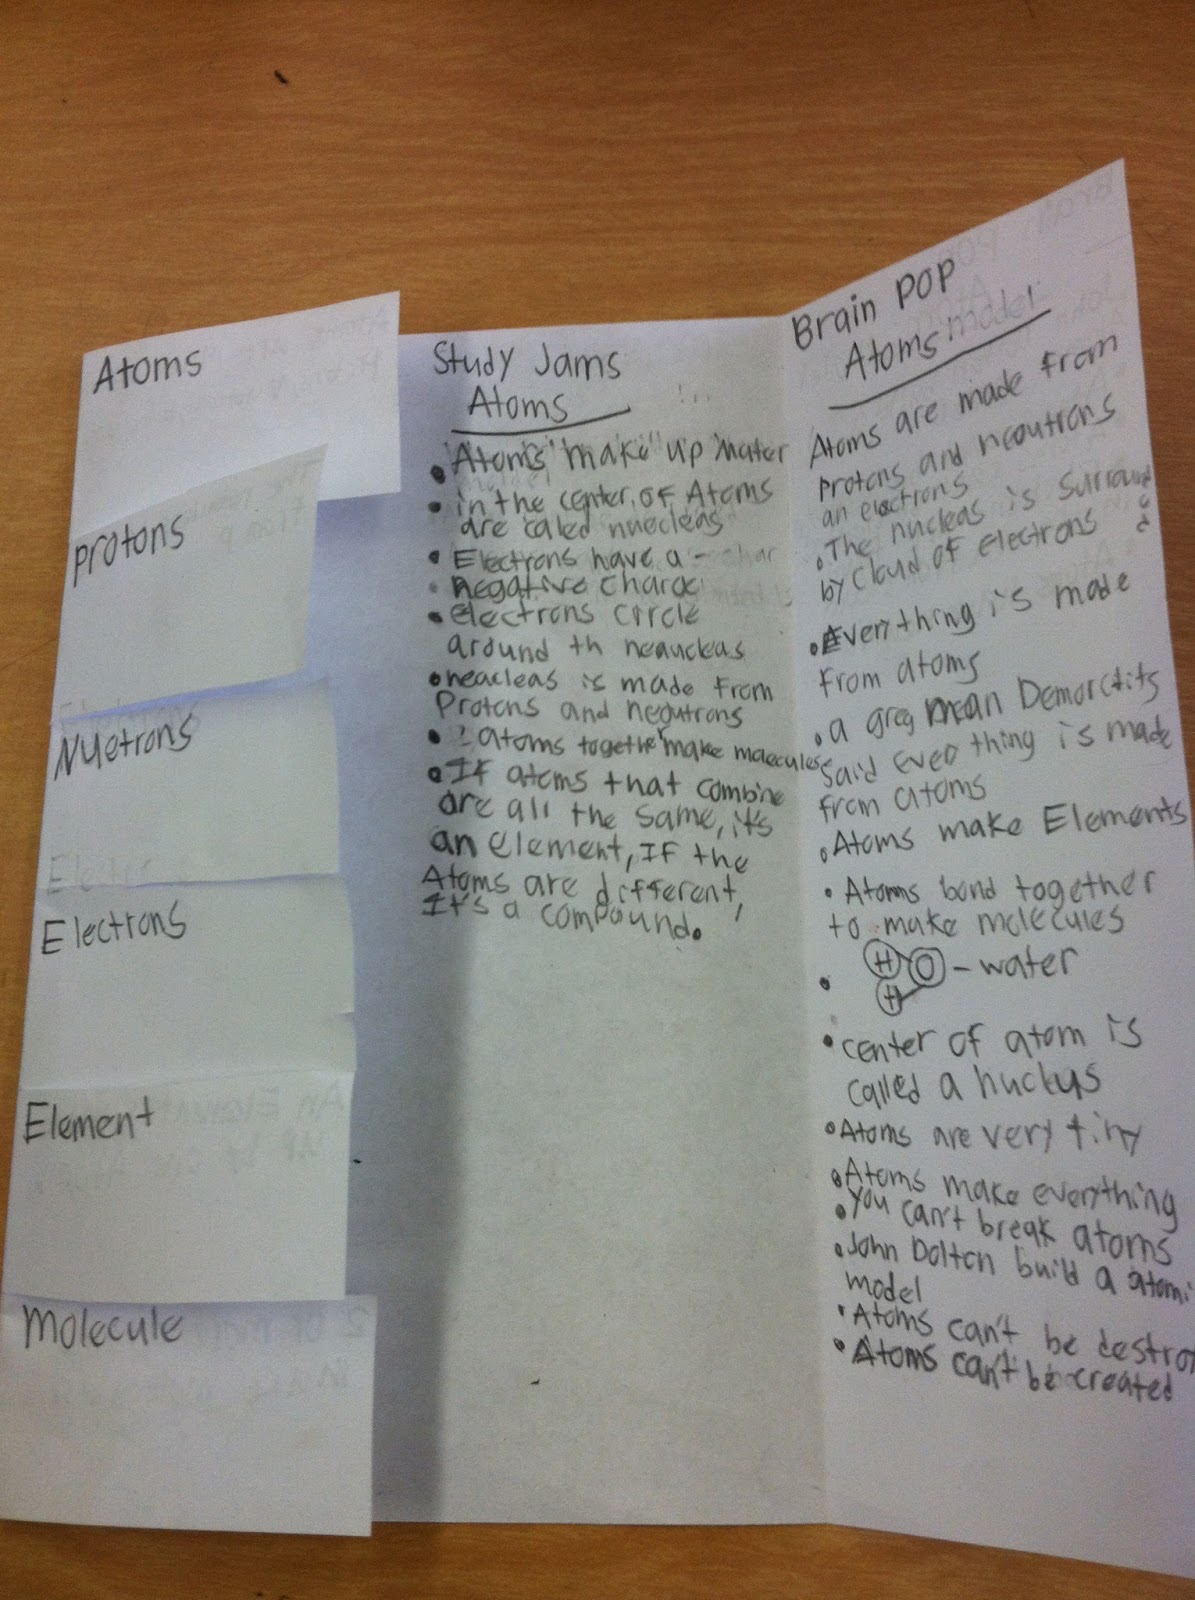 Atoms
protons
Nuetrons
Electrons
Element
Molecule
Study Jams
Atoms
• Atoms make up mater
• in the center of Atoms
are called nuecleas
• Electrons have a -
• negative charge
• electrons circle
around th neaucleas
• neacleas is made from
Protons and negutrons
• 2 atoms together make molecules
• If atoms that combine
are all the same, it's
an element, If the
Atoms are different,
It's a compound.
Brain POP
Atoms model
Atoms are made from
protons and neoutrons
an electrons
• The nucleas is surround
by cloud of electrons
• Everything is made
from atoms
• a greg man Demorctits
said ever thing is made
from atoms
• Atoms make Elements
• Atoms bond together
to make molecules
• H O - water
H
• center of atom is
called a nuckus
• Atoms are very tiny
• Atoms make everything
• You can't break atoms
• John Dolton build a atomi
model
• Atoms can't be destro
• Atoms can't be created